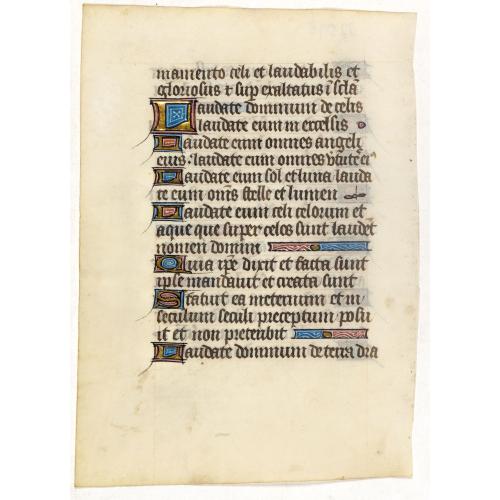 mamento celi et laudabilis et
gloriosus & sup exaltatus ī sclā
Laudate dominum de celis
laudate eum in excelsis
Laudate eum omnes angeli
eius: laudate eum omnes v̄tutes ei᷒
Laudate eum sol et luna lauda
te eum om̄s stelle et lumen
Laudate eum celi celorum et
aque que super celos sunt laudet
nomen domini
Quia ip̄e dixit et facta sunt
ipse mandauit et creata sunt
Statuit ea in eternum et in
seculum seculi preceptum posu
it et non preteribit
Laudate dominum de terra dra